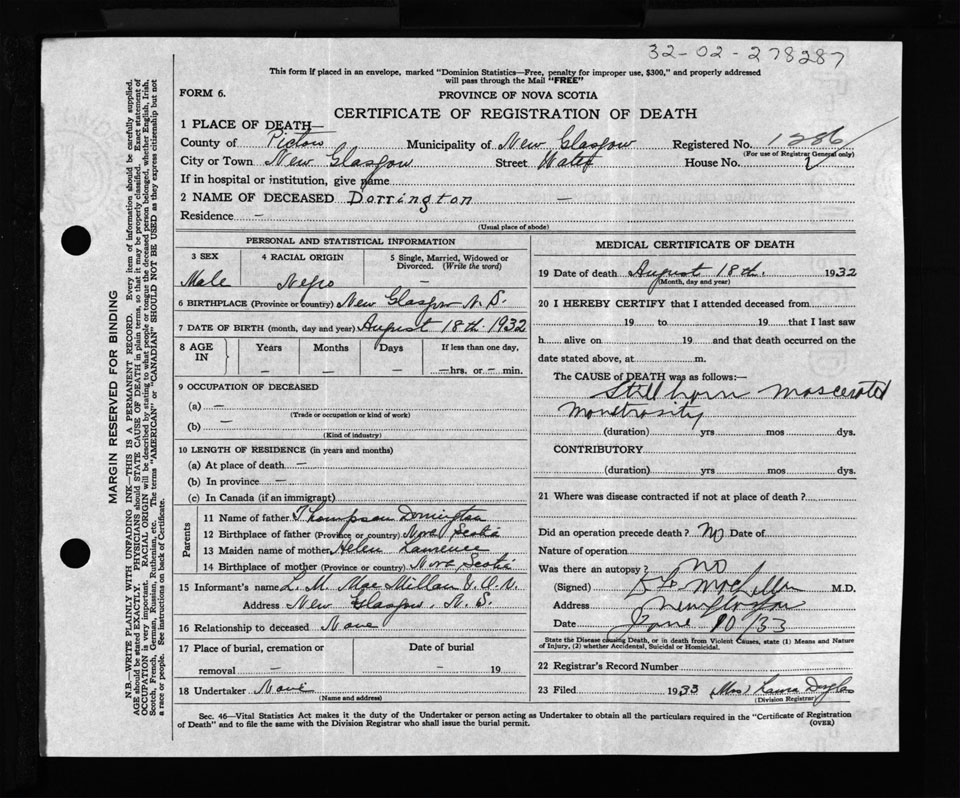 32-02-278287
This form if placed in an envelope, marked "Dominion Statistics—Free, penalty for improper use, $300," and properly addressed
will pass through the Mail "FREE"
FORM 6.
PROVINCE OF NOVA SCOTIA
CERTIFICATE OF REGISTRATION OF DEATH
1 PLACE OF DEATH—
County of Pictou Municipality of New Glasgow Registered No. 1286
(For use of Registrar General only)
City or Town New Glasgow Street Water House No.
If in hospital or institution, give name
2 NAME OF DECEASED Dorrington —
Residence —
(Usual place of abode)
PERSONAL AND STATISTICAL INFORMATION
3 SEX
Male
4 RACIAL ORIGIN
Negro
5 Single, Married, Widowed or
Divorced. (Write the word)
—
6 BIRTHPLACE (Province or country) New Glasgow N.S.
7 DATE OF BIRTH (month, day and year) August 18th. 1932
8 AGE
IN
Years
—
Months
—
Days
—
If less than one day,
—hrs. or — min.
9 OCCUPATION OF DECEASED
(a) —
(Trade or occupation or kind of work)
(b) —
(Kind of industry)
10 LENGTH OF RESIDENCE (in years and months)
(a) At place of death —
(b) In province —
(c) In Canada (if an immigrant)
Parents
11 Name of father Thompson Dorrington
12 Birthplace of father (Province or country) Nova Scotia
13 Maiden name of mother Helen Lawrence
14 Birthplace of mother (Province or country) Nova Scotia
15 Informant's name L. M. MacMillan
Address New Glasgow, N.S.
16 Relationship to deceased None
17 Place of burial, cremation or
removal —
Date of burial
— 19
18 Undertaker None
(Name and address)
MEDICAL CERTIFICATE OF DEATH
19 Date of death August 18th. 1932
(Month, day and year)
20 I HEREBY CERTIFY that I attended deceased from
19 to 19 that I last saw
h alive on 19 and that death occurred on the
date stated above, at m.
The CAUSE of DEATH was as follows:—
Still born mascerated
monstrosity
(duration) yrs mos dys.
CONTRIBUTORY
(duration) yrs mos dys.
21 Where was disease contracted if not at place of death?
Did an operation precede death? No Date of
Nature of operation
Was there an autopsy? NO
(Signed) M.D.
Address New Glasgow
Date June 10 33
State the Disease causing Death, or in death from Violent Causes, state (1) Means and Nature
of Injury, (2) whether Accidental, Suicidal or Homicidal.
22 Registrar's Record Number
23 Filed 1933 (Mrs) Laura Douglas
(Division Registrar)
Sec. 46—Vital Statistics Act makes it the duty of the Undertaker or person acting as Undertaker to obtain all the particulars required in the "Certificate of Registration
of Death" and to file the same with the Division Registrar who shall issue the burial permit. (OVER)
MARGIN RESERVED FOR BINDING
N.B.—WRITE PLAINLY WITH UNFADING INK—THIS IS A PERMANENT RECORD. Every item of information should be carefully supplied.
AGE should be stated EXACTLY. PHYSICIANS should STATE CAUSE OF DEATH in plain terms, so that it may be properly classified. Exact statement of
OCCUPATION is very important. RACIAL ORIGIN will be described by stating to what people or tongue the deceased person belonged, whether English, Irish,
Scotch, French, German, Russian, Ruthenian, etc. The terms "AMERICAN" or "CANADIAN" SHOULD NOT BE USED as they express citizenship but not
a race or people. See instructions on back of Certificate.